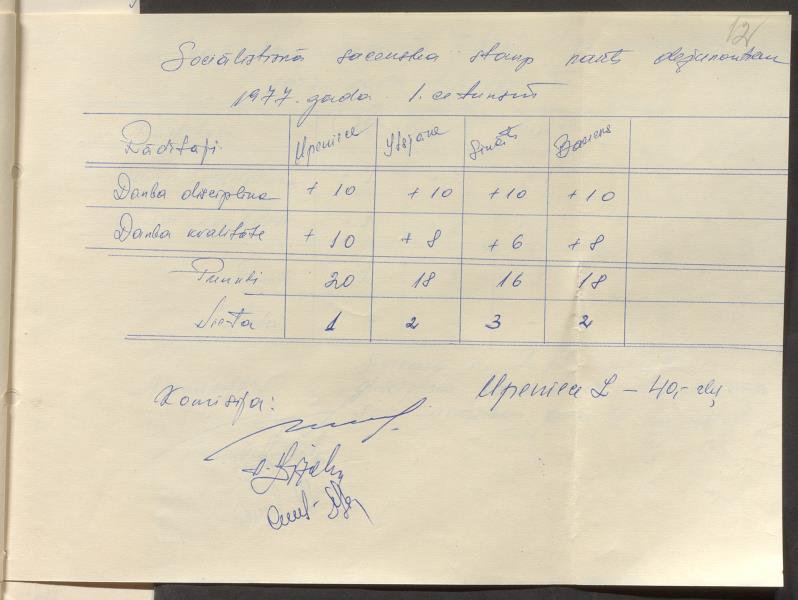 12
Sociālistiskā sacensība starp nakts dežurantiem
1977. gada 1. ceturksnī
Rādītāji Upeniece Sināte
Darba disciplīna +10 +10 +10 +10
Darba kvalitāte +10 +8 +6 +8
Punkti 20 18 16 18
Vieta 1 2 3 2
Komisija: Upeniece L – 40,-